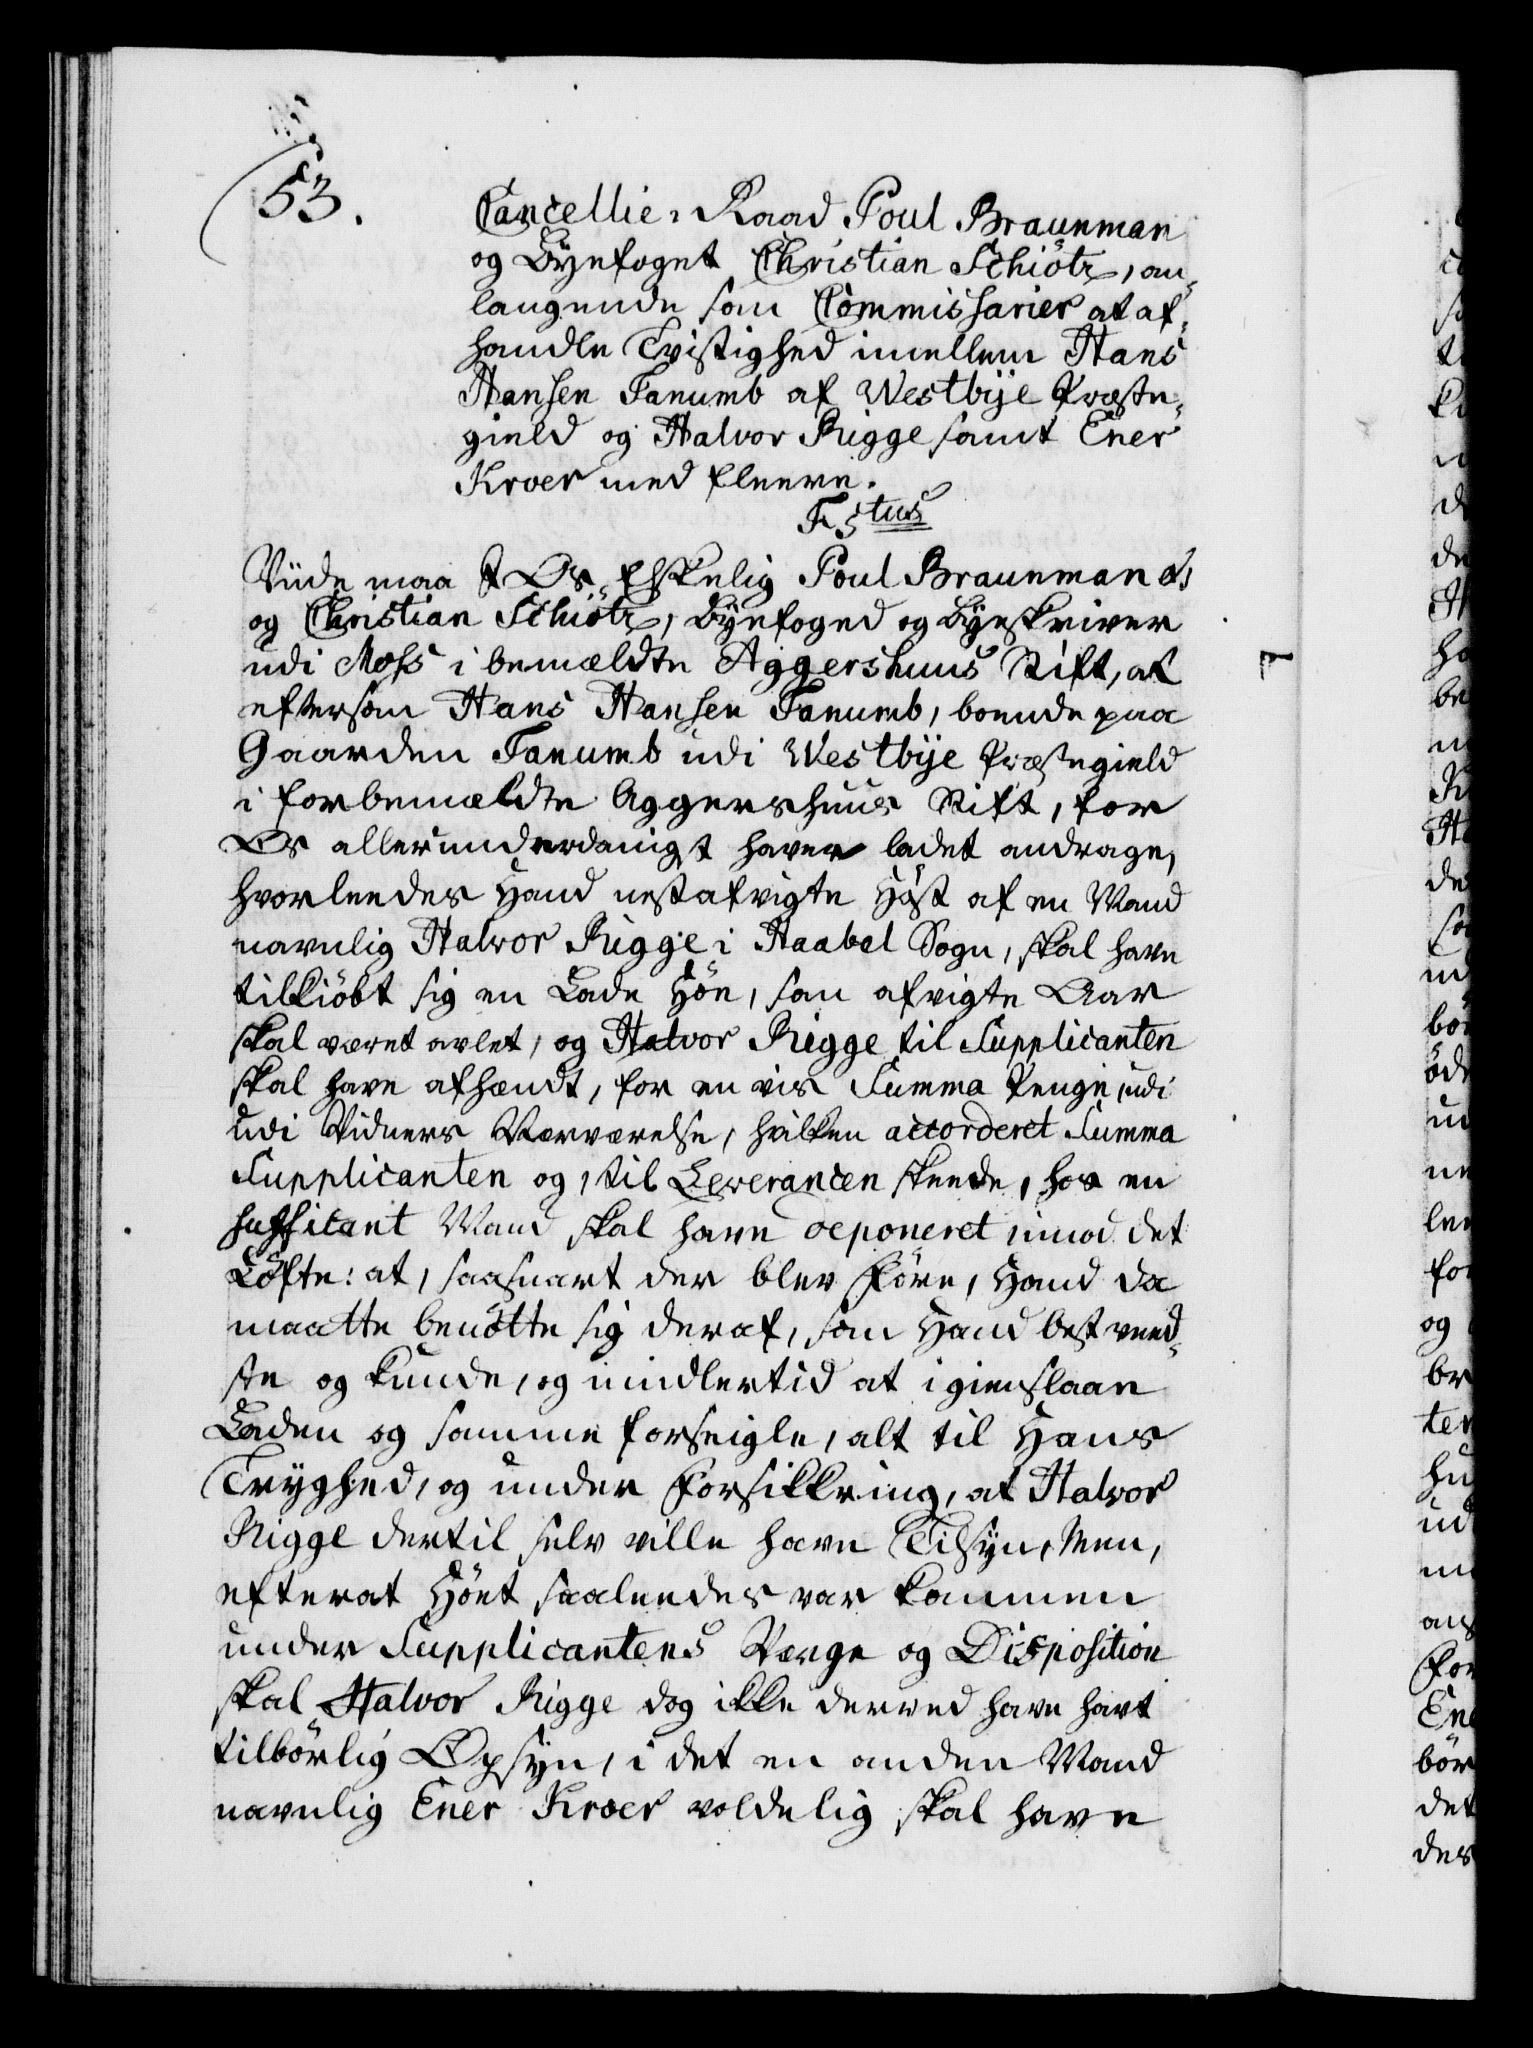 53.
Cancellie-Raad Poul Braunman
og Byefoget Christian Schiötz, an-
langende som Commissarier at af-
handle Tvistighed imellem Hans
Hansen Fanumb af Westbÿe Præste-
gield og Halvor Rigge samt Ener
Kroer med fleere.
F 5tus
Viide maa I Os Elskelig Poul Braunman &c
og Christian Schiötz, Byefoged og Byeskriver
udi Moss i bemældte Aggershuus Stift, at
eftersom Hans Hansen Fanumb, boende paa
Gaarden Fanumb udi Westbÿe Præstegield
i forbemældte Aggershuus Stift, for
Os allerunderdanigst haver ladet andrage,
hvorleedes Hand nestafvigte Höst af en Mand
navnlig Halvor Rigge i Haabel Sogn, skal have
tilkiöbt sig en Lade Höe, som afvigte Aar
skal været avlet, og Halvor Rigge til Supplicanten
skal have afhændt, for en vis Summa Penge, udi
udi Vidners Nærværelse, hvilken accorderet Summa
Supplicanten og, til Leverancen skeede, hos en
sufficant Mand skal have deponeret imod det
Löfte: at, saasnart der blev Före, Hand da
maatte benötte sig deraf, som Hand best veed-
ste og kunde, og imidlertid at igienslaae
Laden og samme forseigle, alt til Hans
Tryghed, og under Forsikkring, at Halvor
Rigge dertil selv ville have Tilsÿn, Men,
efterat Höet saaleedes var kommen
under Supplicantens Værge og Disposition
skal Halvor Rigge dog ikke derved have havt
tilbörlig Opsÿn, i det en anden Mand
navnlig Ener Kroer voldelig skal have